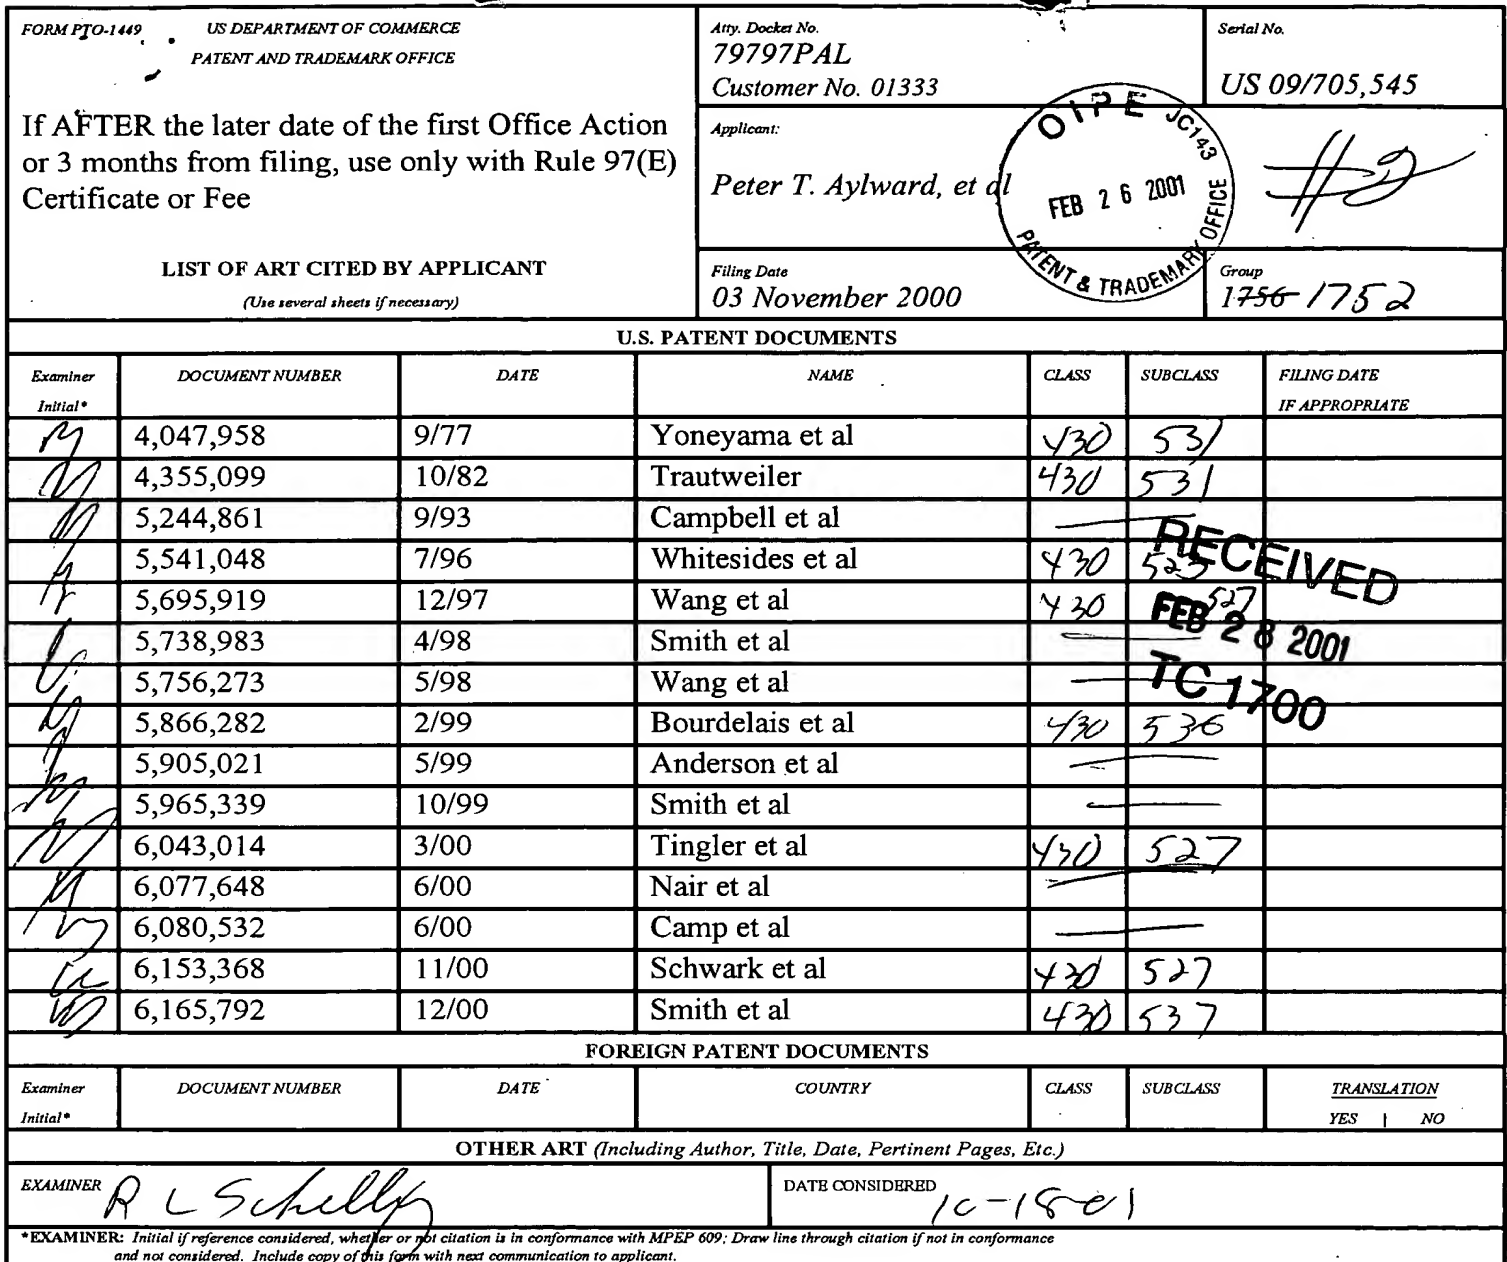 FORM PTO-1449 US DEPARTMENT OF COMMERCE
PATENT AND TRADEMARK OFFICE
If AFTER the later date of the first Office Action
or 3 months from filing, use only with Rule 97(E)
Certificate or Fee
LIST OF ART CITED BY APPLICANT
(Use several sheets if necessary)
Atty. Docket No.
79797PAL
Customer No. 01333
Serial No.
US 09/705,545
Applicant:
Peter T. Aylward, et al
OIPE JC143
FEB 26 2001
PATENT & TRADEMARK OFFICE
#2
Filing Date
03 November 2000
Group
1756 1752
U.S. PATENT DOCUMENTS
Examiner Initial* DOCUMENT NUMBER DATE NAME CLASS SUBCLASS FILING DATE IF APPROPRIATE
4,047,958 9/77 Yoneyama et al 430 531
4,355,099 10/82 Trautweiler 430 531
5,244,861 9/93 Campbell et al
5,541,048 7/96 Whitesides et al 430 523
5,695,919 12/97 Wang et al 430 527
5,738,983 4/98 Smith et al
5,756,273 5/98 Wang et al
5,866,282 2/99 Bourdelais et al 430 536
5,905,021 5/99 Anderson et al
5,965,339 10/99 Smith et al
6,043,014 3/00 Tingler et al 430 527
6,077,648 6/00 Nair et al
6,080,532 6/00 Camp et al
6,153,368 11/00 Schwark et al 430 527
6,165,792 12/00 Smith et al 430 537
RECEIVED
FEB 28 2001
TC 1700
FOREIGN PATENT DOCUMENTS
Examiner Initial* DOCUMENT NUMBER DATE COUNTRY CLASS SUBCLASS TRANSLATION
YES | NO
OTHER ART (Including Author, Title, Date, Pertinent Pages, Etc.)
EXAMINER R L Schilling
DATE CONSIDERED 10-18-01
*EXAMINER: Initial if reference considered, whether or not citation is in conformance with MPEP 609; Draw line through citation if not in conformance
and not considered. Include copy of this form with next communication to applicant.